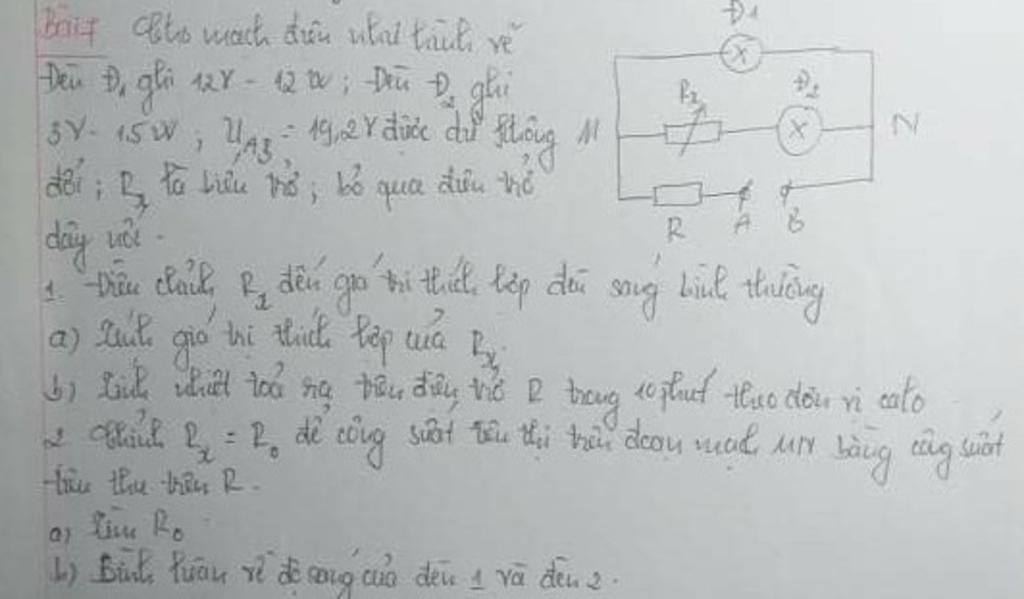 Bài 7 Cho mạch điện như hình vẽ
Đèn Đ1 ghi 12V - 12W ; Đèn Đ2 ghi
3V - 1,5W ; UAB = 19,2V được dữ không
đổi ; Rx là biến trở ; bỏ qua điện trở
dây nối .
1. Điều chỉnh Rx đến giá trị thích hợp đèn sáng bình thường
a) Tính giá trị thích hợp của Rx.
b) Tính nhiệt toả ra trên điện trở R trong 10 phút theo đơn vị calo
2 Chỉnh Rx = R0 để công suất tiêu thụ trên đoạn mạch MN bằng công suất
tiêu thụ trên R.
a) Tìm R0
b) Bình luận về độ sáng của đèn 1 và đèn 2.
Đ1
Rx
Đ2
M
N
R
A
B